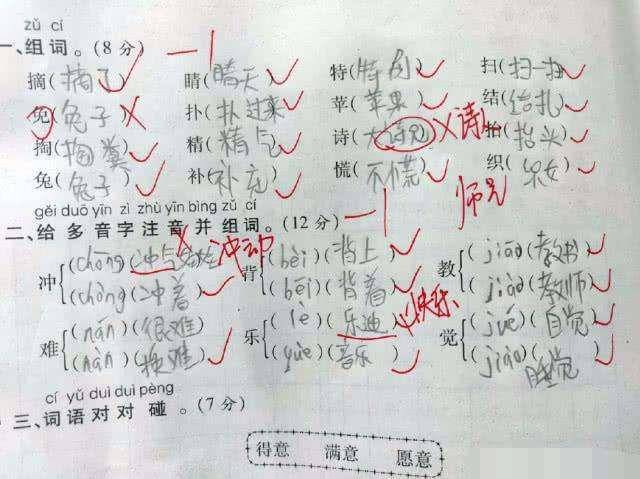 zǔ cí
一、组词。(8分) 一1
摘(摘了) 晴(晴天) 特(特别) 扫(扫一扫)
免(兔子) 扑(扑过来) 苹(苹果) 结(结扎)
掏(掏粪) 精(精气) 诗(大诗兄) 诗 抬(抬头)
兔(兔子) 补(补充) 慌(不慌) 织(织女)
师兄
gěi duō yīn zì zhù yīn bìng zǔ cí
二、给多音字注音并组词。(12分) 一1
冲 (chōng)(冲气) 冲动 背 (bèi)(背上) 教 (jiāo)(教书)
(chòng)(冲着) (bēi)(背着) (jiào)(教师)
难 (nán)(很难) 乐 (lè)(乐迪) 快乐 觉 (jué)(自觉)
(nàn)(换难) (yuè)(音乐) (jiào)(睡觉)
cí yǔ duì duì pèng
三、词语对对碰。(7分)
得意 满意 愿意